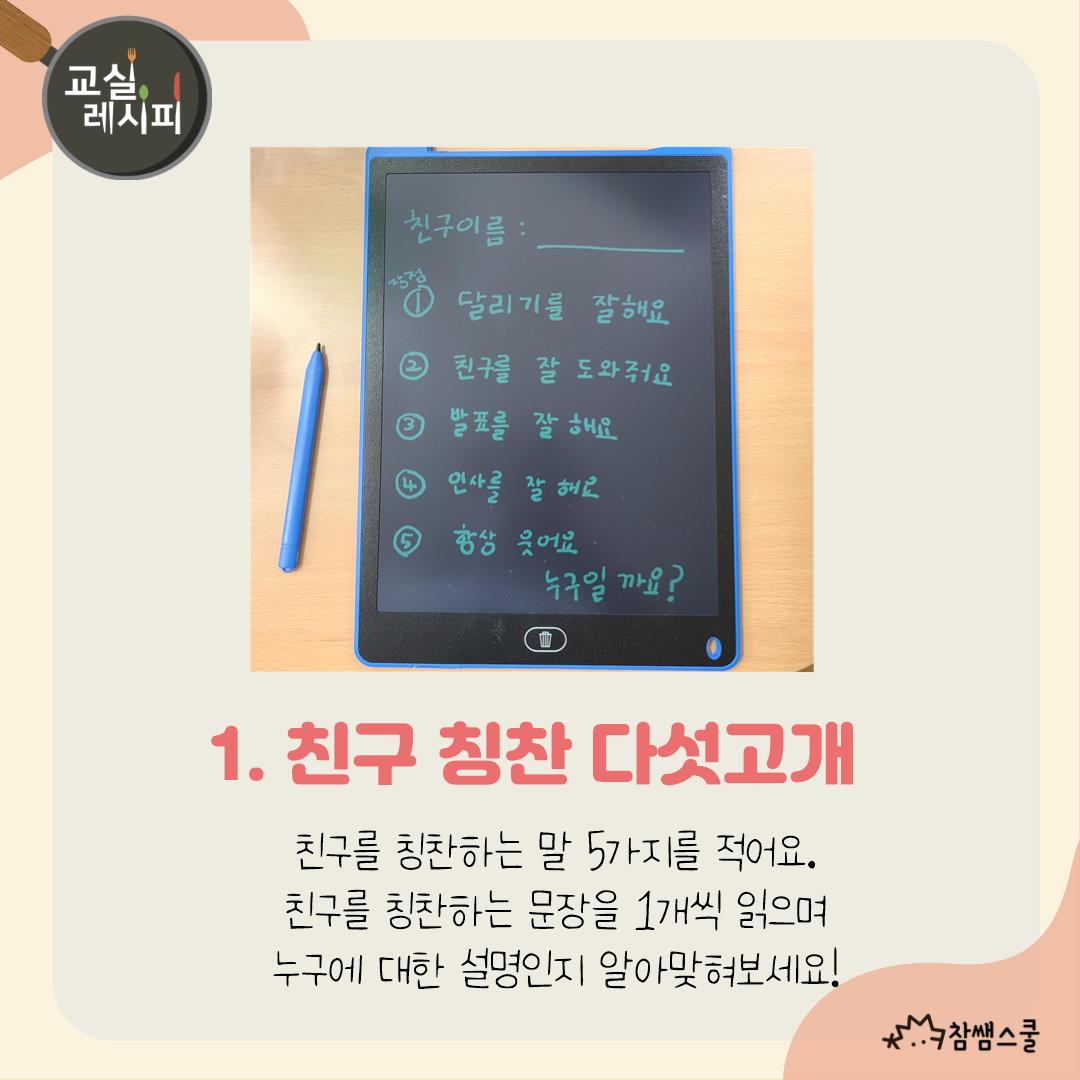 교실
레시피
친구이름 :
장점
① 달리기를 잘해요
② 친구를 잘 도와줘요
③ 발표를 잘 해요
④ 인사를 잘 해요
⑤ 항상 웃어요
누구일 까요?
1. 친구 칭찬 다섯고개
친구를 칭찬하는 말 5가지를 적어요.
친구를 칭찬하는 문장을 1개씩 읽으며
누구에 대한 설명인지 알아맞혀보세요!
참쌤스쿨